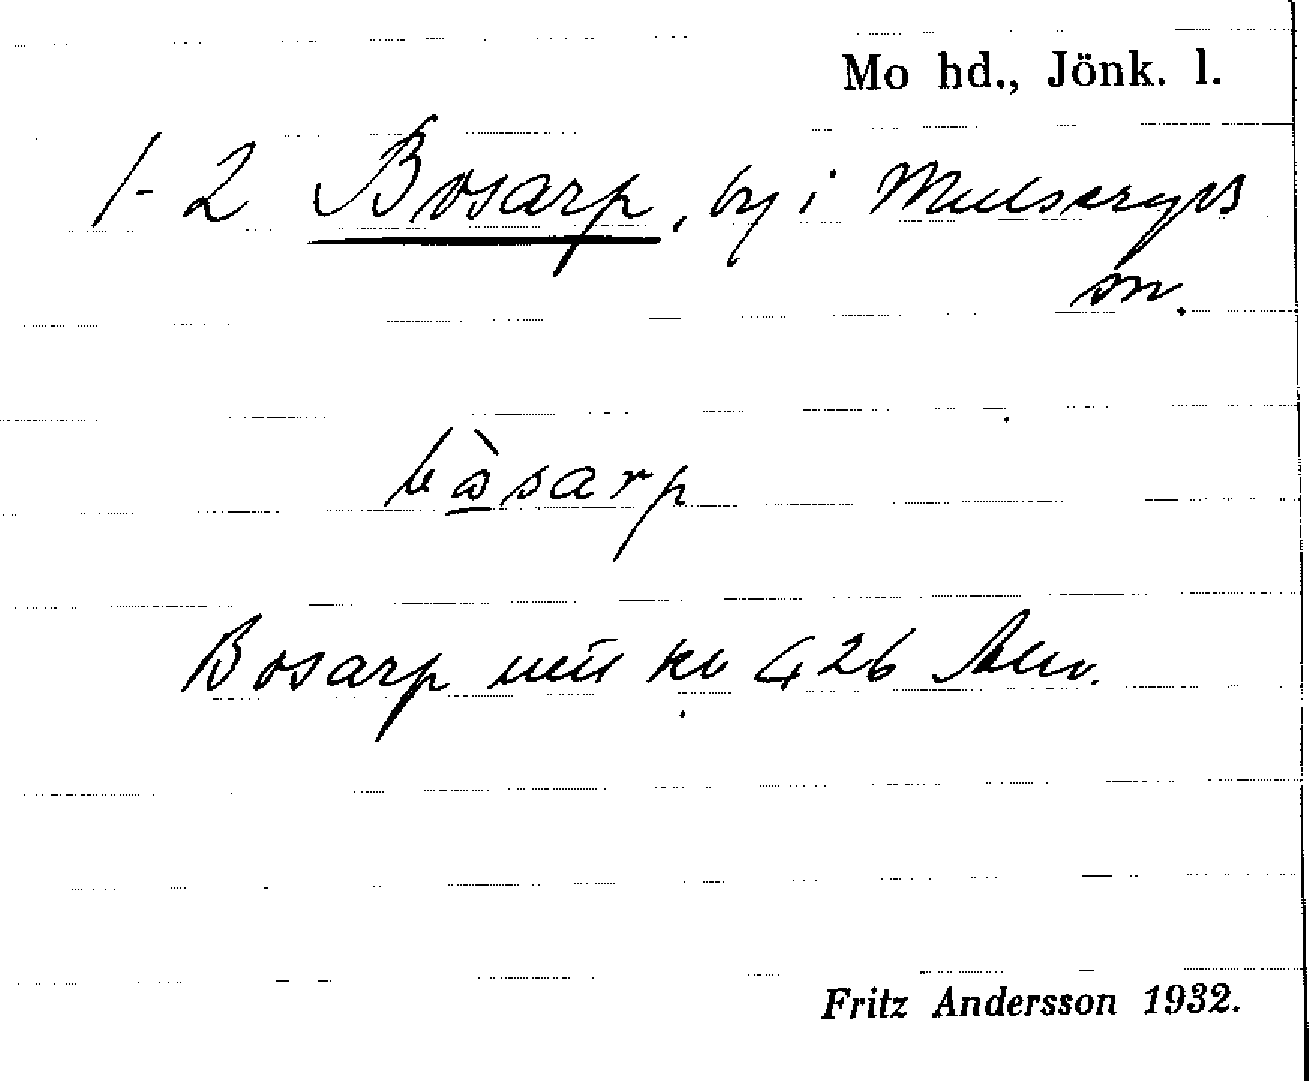 Mo hd., Jönk. l.
1-2 Bosarp, by i Mulseryds
sn.
bòsarp
Bosarp kv 426
Fritz Andersson 1932.